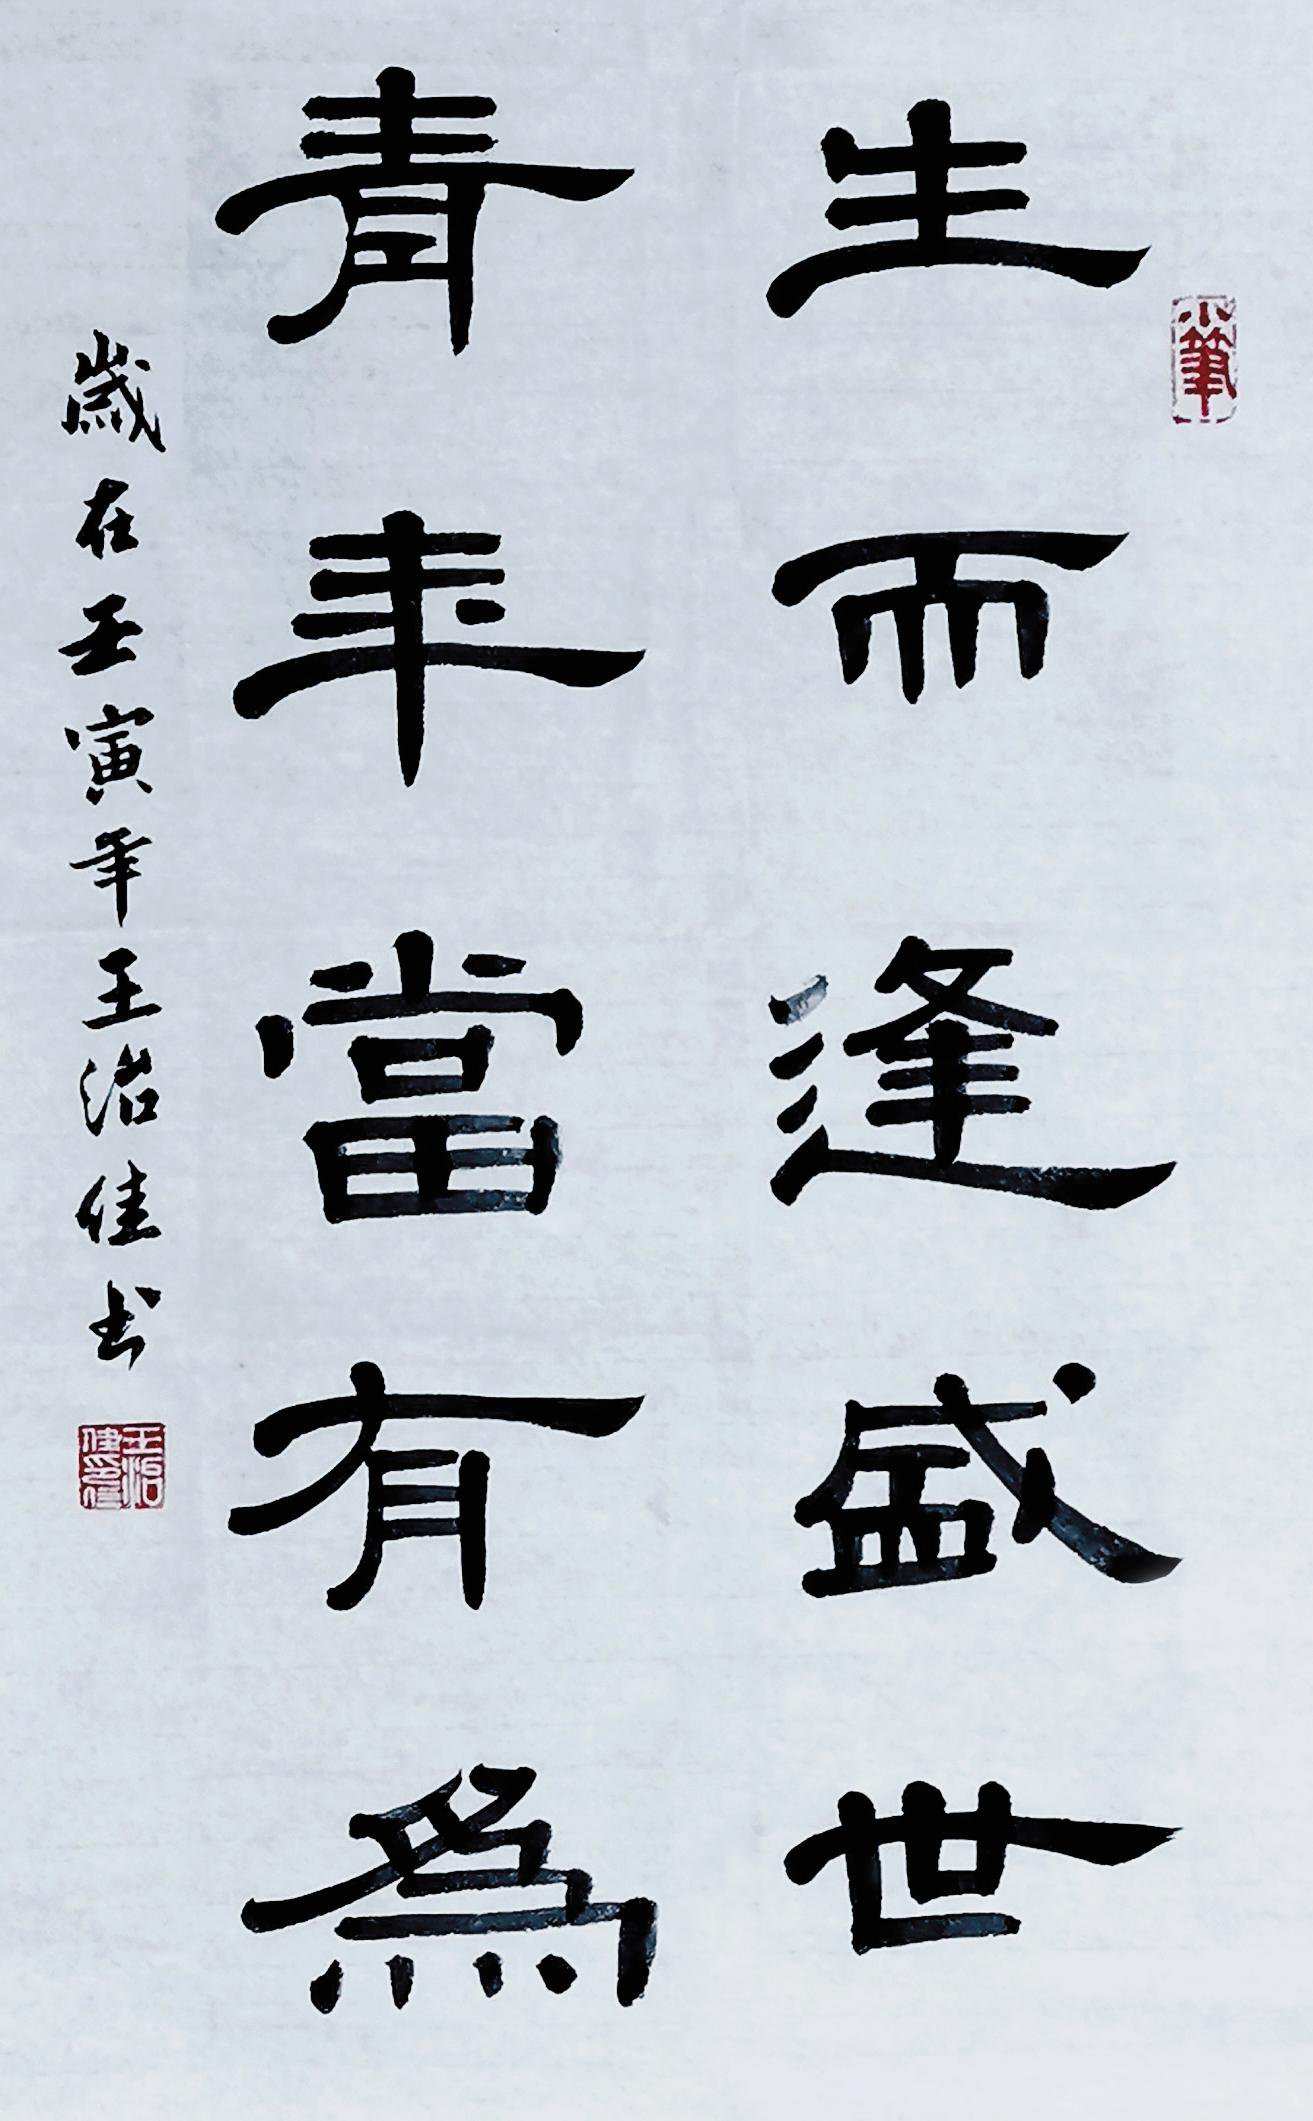 生而逢盛世
青年當有為
歲在壬寅年王治佳书
小筆